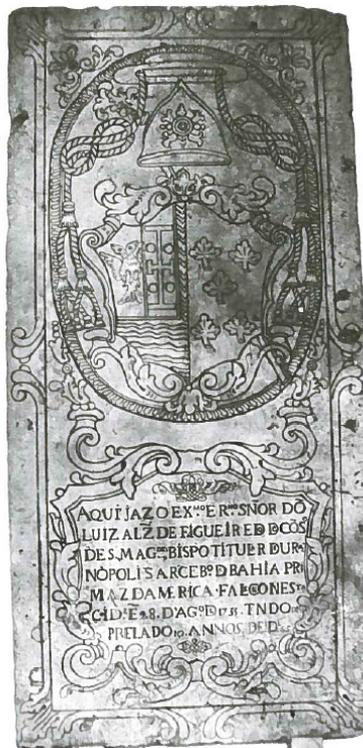 AQUI JAZ O EX.MO E R.MO SNOR DÕ
LUIZ ALZ̃ DE FIGUEIRED D COS
DE S, MAG.DE BISPO TITULR D UR
NOPOLIS ARCEB.O D BAHIA PRI
MAZ D AMERICA FALECO NESTA
CID.E Ē 28. D'AG.O D 1735. TNDO
PRELADO 10. ANNOS, DE ID